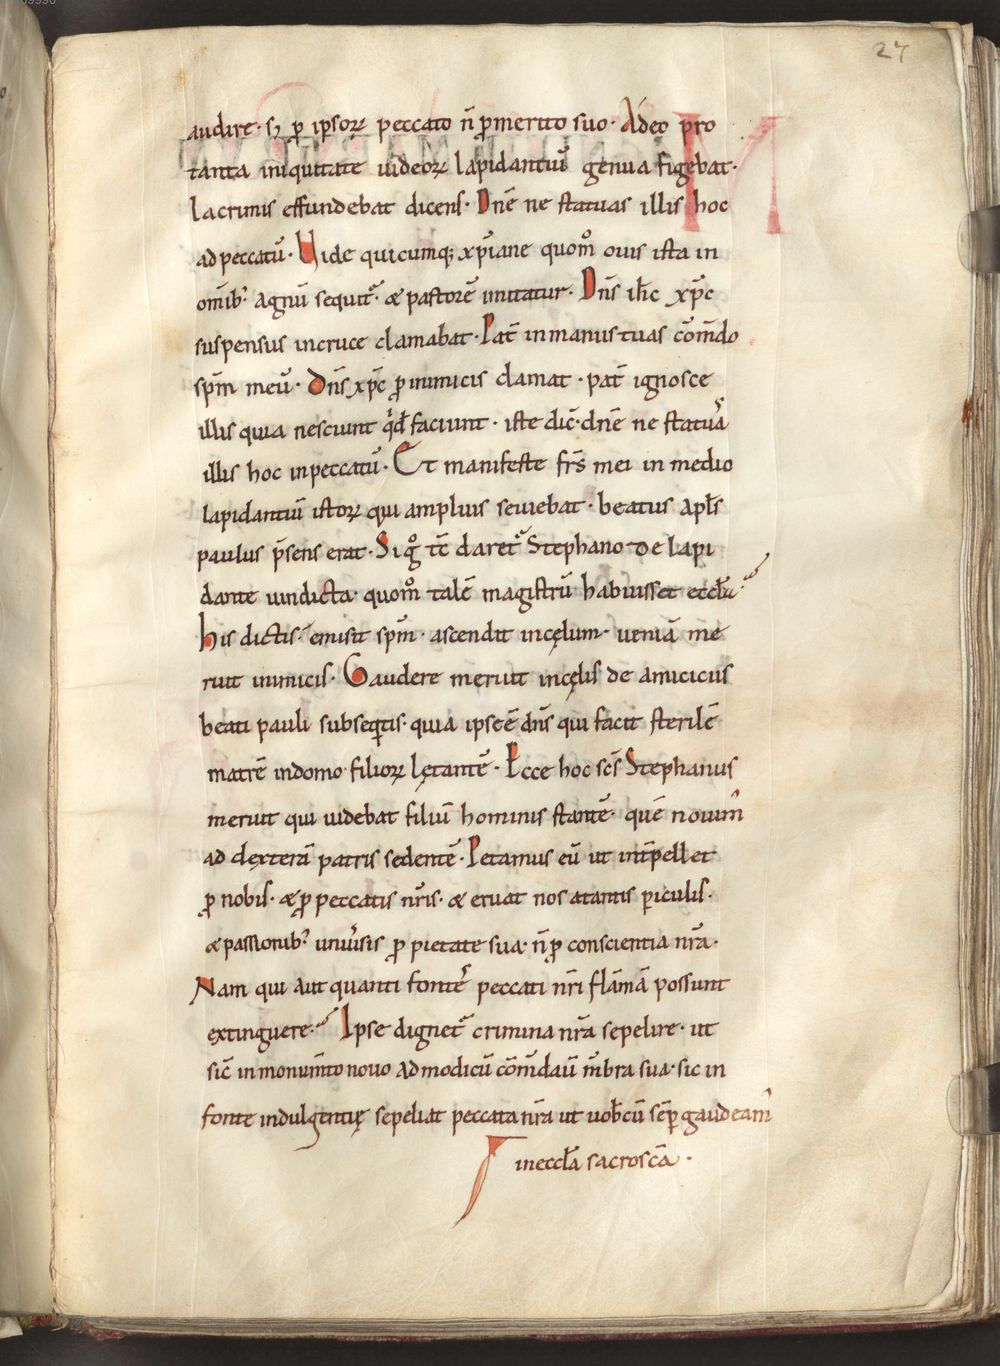 27
audire· sꝫ p̱ ipsoꝝ peccato n̄ p̱merito suo· Adeo pro
tanta iniquitate uideoꝝ lapidantiū genua figebat·
lacrimis effundebat dicens· Dnē ne statuas illis hoc
ad peccatū· Uide quicumq; xp̄iane quom̊ ouis ista in
omīb; agnū sequit᷑· & pastorē imitatur· Dn̄s ih̄c xp̄c
suspensus incruce clamabat· Pat̄ inmanus tuas cōm̄do
sp̄m meū· Dn̄s xp̄c p̱ inimicis clamat· pat̄ ignosce
illis quia nesciunt qͥd faciunt· iste dic̄· dnē ne statuas
illis hoc inpeccatū· Et manifeste fr̄s mei in medio
lapidantiū istoꝝ qui amplius seuiebat· beatus apl̄s
paulus p̄sens erat· Si g̊ tc̄ daret᷑ Stephano de lapi
dante uindicta· quom̊ talē magistrū habuisset eccl̄a·
his dictis· emisit sp̄m· ascendit incęlum· ueniā me
ruit inimicis· Gaudere meruit incęlis de amiciciis
beati pauli subseq̄tis· quia ipse ē dn̄s qui facit sterilē
matrē indomo filioꝝ lętantē· Ecce hoc sc̄s Stephanus
meruit qui uidebat filiū hominis stantē· quē nouim᷒
ad dexterā patris sedentē· Petamus eū ut int̄pellet
p̱ nobis· & p̱ peccatis nr̄is· & eruat nos atantis ꝑiculis·
& passionib; uniu̾sis p̱ pietate sua· n̄ p̱ conscientia nr̄a·
Nam qui aut quanti fontes peccati nr̄i flāmā possunt
extinguere· Ipse dignet᷑ crimina nr̄a sepelire· ut
sic̄ in monum̄to nouo ad modicū cōm̄dauꝰ m̄bra sua· sic in
fonte indulgentię sepeliat peccata nr̄a ut uob̄cū sēp̱ gaudeam᷒
in eccl̄a sacrosc̄a·